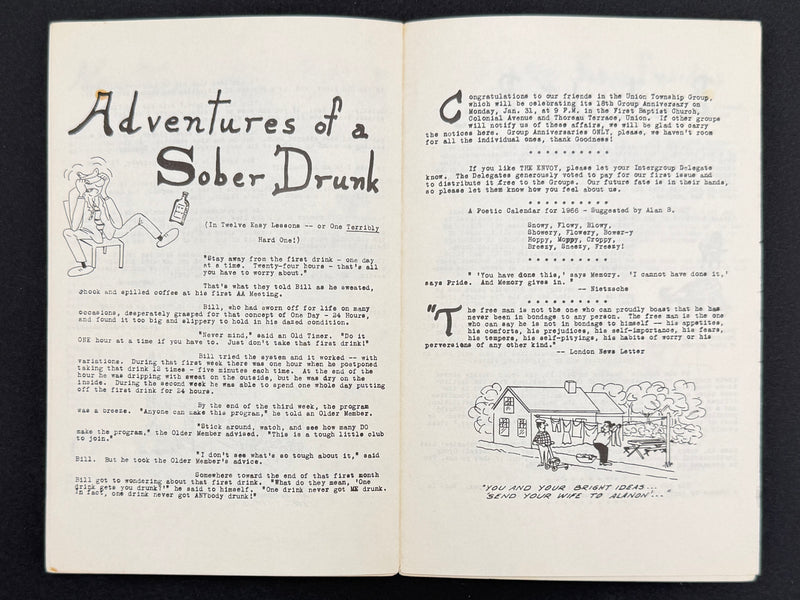 Adventures of a
Sober Drunk
(In Twelve Easy Lessons -- or One Terribly
Hard One!)
"Stay away from the first drink - one day
at a time. Twenty-four hours - that's all
you have to worry about."
That's what they told Bill as he sweated,
shook and spilled coffee at his first AA Meeting.
Bill, who had sworn off for life on many
occasions, desperately grasped for that concept of One Day - 24 Hours,
and found it too big and slippery to hold in his dazed condition.
"Never mind," said an Old Timer. "Do it
ONE hour at a time if you have to. Just don't take that first drink!"
Bill tried the system and it worked -- with
variations. During that first week there was one hour when he postponed
taking that drink 12 times - five minutes each time. At the end of the
hour he was dripping with sweat on the outside, but he was dry on the
inside. During the second week he was able to spend one whole day putting
off the first drink for 24 hours.
By the end of the third week, the program
was a breeze. "Anyone can make this program," he told an Older Member.
"Stick around, watch, and see how many DO
make the program," the Older Member advised. "This is a tough little club
to join."
"I don't see what's so tough about it," said
Bill. But he took the Older Member's advice.
Somewhere toward the end of that first month
Bill got to wondering about that first drink. "What do they mean, 'One
drink gets you drunk?'" he said to himself. "One drink never got ME drunk.
In fact, one drink never got ANYbody drunk!"
Congratulations to our friends in the Union Township Group,
which will be celebrating its 18th Group Anniversary on
Monday, Jan. 31, at 9 P.M. in the First Baptist Church,
Colonial Avenue and Thoreau Terrace, Union. If other groups
will notify us of these affairs, we will be glad to carry
the notices here. Group Anniversaries ONLY, please, we haven't room
for all the individual ones, thank Goodness!
* * * * * * * * * * *
If you like THE ENVOY, please let your Intergroup Delegate
know. The Delegates generously voted to pay for our first issue and
to distribute it free to the Groups. Our future fate is in their hands,
so please let them know how you feel about us.
* * * * * * * * * * *
A Poetic Calendar for 1966 - Suggested by Alan S.
Snowy, Flowy, Blowy,
Showery, Flowery, Bower-y
Hoppy, Moppy, Croppy,
Breezy, Sneezy, Freezy!
* * * * * * * * * * *
" 'You have done this,' says Memory. 'I cannot have done it,'
says Pride. And Memory gives in. "
-- Nietzsche
* * * * * * * * * * *
"The free man is not the one who can proudly boast that he has
never been in bondage to any person. The free man is the one
who can say he is not in bondage to himself -- his appetites,
his comforts, his prejudices, his self-importance, his fears,
his tempers, his self-pityings, his habits of worry or his
perversions of any other kind."
-- London News Letter
"YOU AND YOUR BRIGHT IDEAS...
'SEND YOUR WIFE TO ALANON'..."